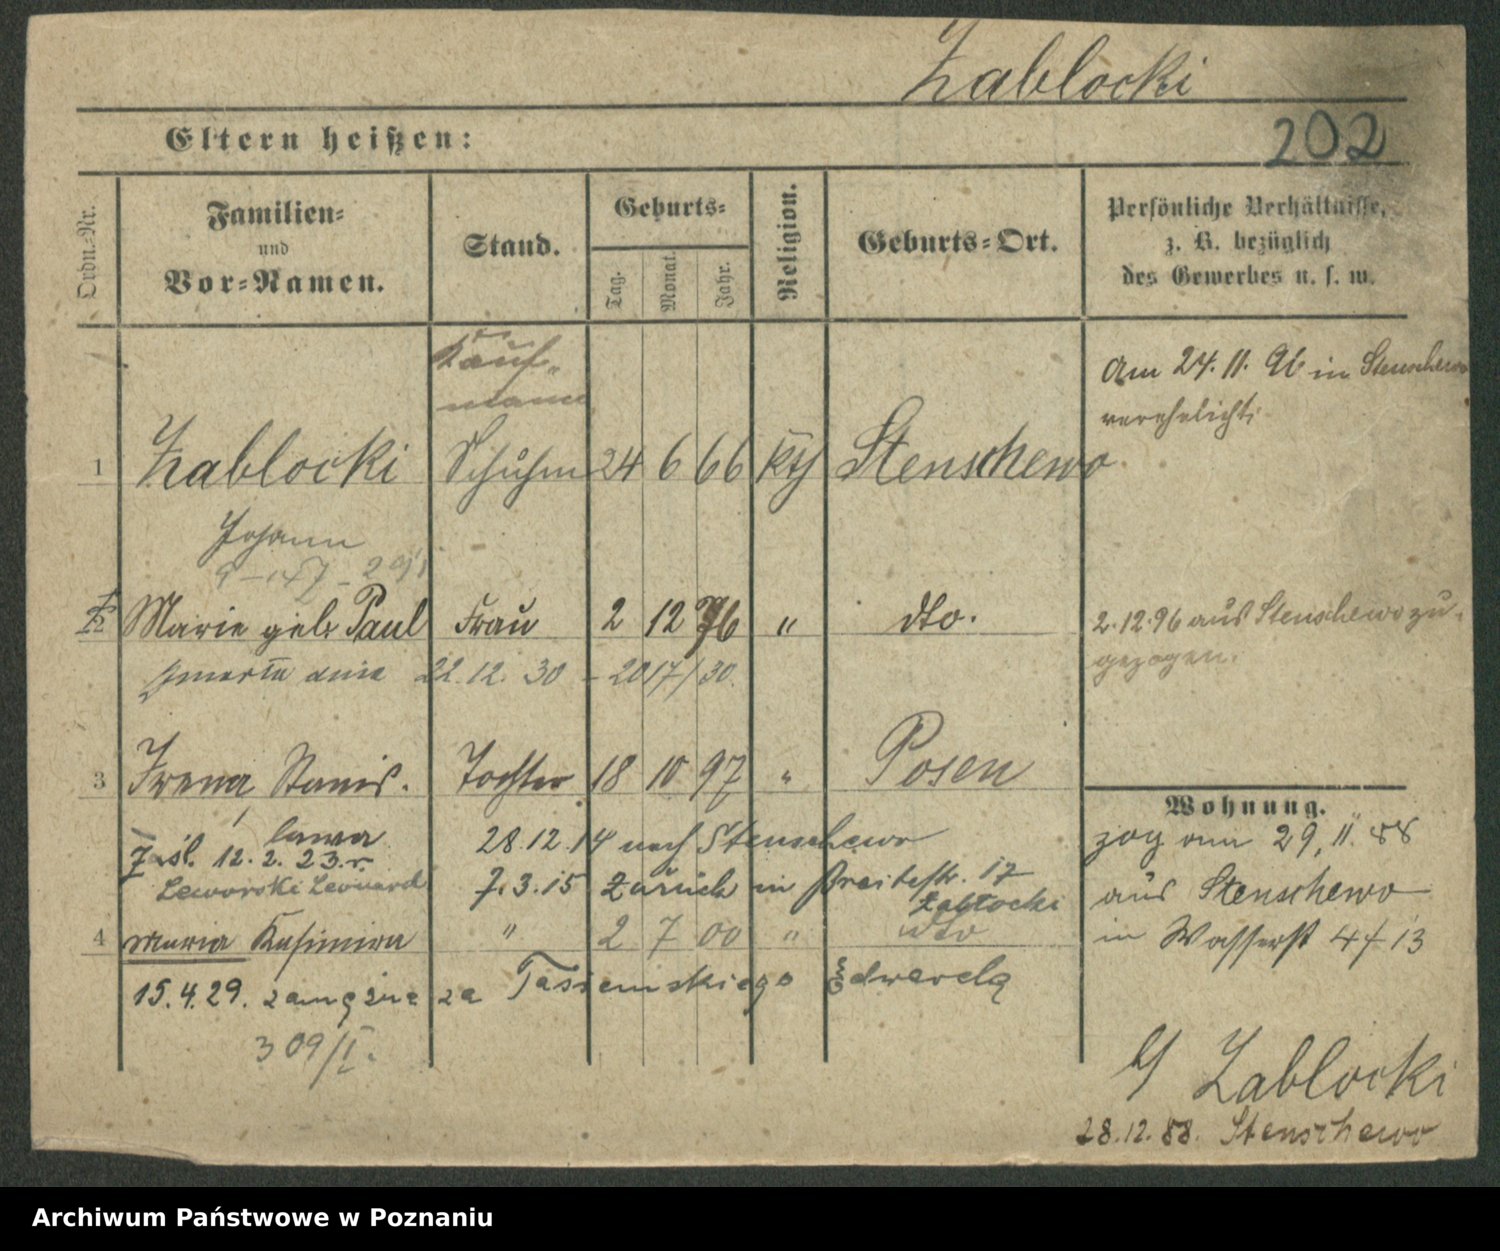 Zablocki
Eltern heißen:
202
Ordn.-Nr.
Familien-
und
Vor-Namen.
Stand.
Geburts-
Tag.
Monat.
Jahr.
Religion.
Geburts-Ort.
Persönliche Verhältnisse,
z. B. bezüglich
des Gewerbes u. s. w.
Kauf-
mann
Am 24. 11. 96 in Stenschewo
verehelicht.
1 Zablocki Schuhm 24 6 66 kth Stenschewo
Johann
2 Marie geb. Paul Frau 2 12 76 " dto.
2.12.96 aus Stenschewo zu-
gezogen.
zmarła dnia 22.12.30 - 2017/30.
3 Irena Stanis- Tochter 18 10 97 " Posen
lawa
Wohnung.
28.12.14 nach Stenschewo
zog am 29, 11. 88
zasl. 12.2.23. r.
Leworski Leonard 7.3.15 zurück in Breitestr. 17
Zabłocki
aus Stenschewo
4 Maria Kasimira " 2 7 00 " dto
in Wasserst 4 f 13
15.4.29. zamężna za Tasiemskiego Edwarda
309/I.
Zablocki
28.12.88. Stenschewo
Archiwum Państwowe w Poznaniu